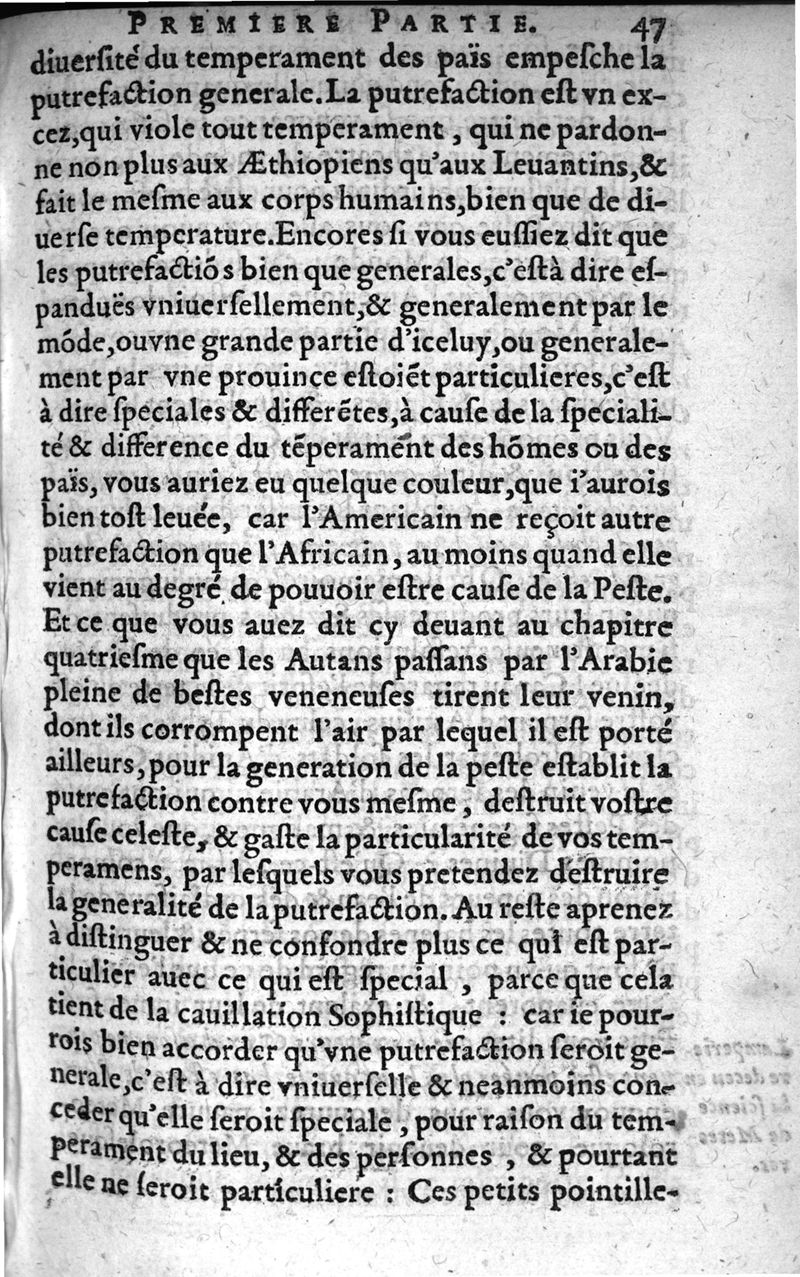 PREMIERE PARTIE. 47
diuerſité du temperament des païs empeſche la
putrefaction generale. La putrefaction eſt vn ex-
cez, qui viole tout temperament, qui ne pardon-
ne non plus aux Æthiopiens qu'aux Leuantins, &
fait le meſme aux corps humains, bien que de di-
uerſe temperature. Encores ſi vous euſſiez dit que
les putrefactiós bien que generales, c'eſt à dire eſ-
panduës vniuerſellement, & generalement par le
móde, ou vne grande partie d'iceluy, ou generale-
ment par vne prouince eſtoiét particulieres, c'eſt
à dire ſpeciales & differétes, à cauſe de la ſpeciali-
té & difference du tẽperament des hõmes ou des
païs, vous auriez eu quelque couleur, que i'aurois
bien toſt leuée, car l'Americain ne reçoit autre
putrefaction que l'Africain, au moins quand elle
vient au degré de pouuoir eſtre cauſe de la Peſte.
Et ce que vous auez dit cy deuant au chapitre
quatrieſme que les Autans paſſans par l'Arabie
pleine de beſtes veneneuſes tirent leur venin,
dont ils corrompent l'air par lequel il eſt porté
ailleurs, pour la generation de la peſte eſtablit la
putrefaction contre vous meſme, deſtruit voſtre
cauſe celeſte, & gaſte la particularité de vos tem-
peramens, par leſquels vous pretendez deſtruire
la generalité de la putrefaction. Au reſte aprenez
à diſtinguer & ne confondre plus ce qui eſt par-
ticulier auec ce qui eſt ſpecial, parce que cela
tient de la cauillation Sophiſtique : car ie pour-
rois bien accorder qu'vne putrefaction ſeroit ge-
nerale, c'eſt à dire vniuerſelle & neanmoins con-
ceder qu'elle ſeroit ſpeciale, pour raiſon du tem-
perament du lieu, & des perſonnes, & pourtant
elle ne ſeroit particuliere : Ces petits pointille-